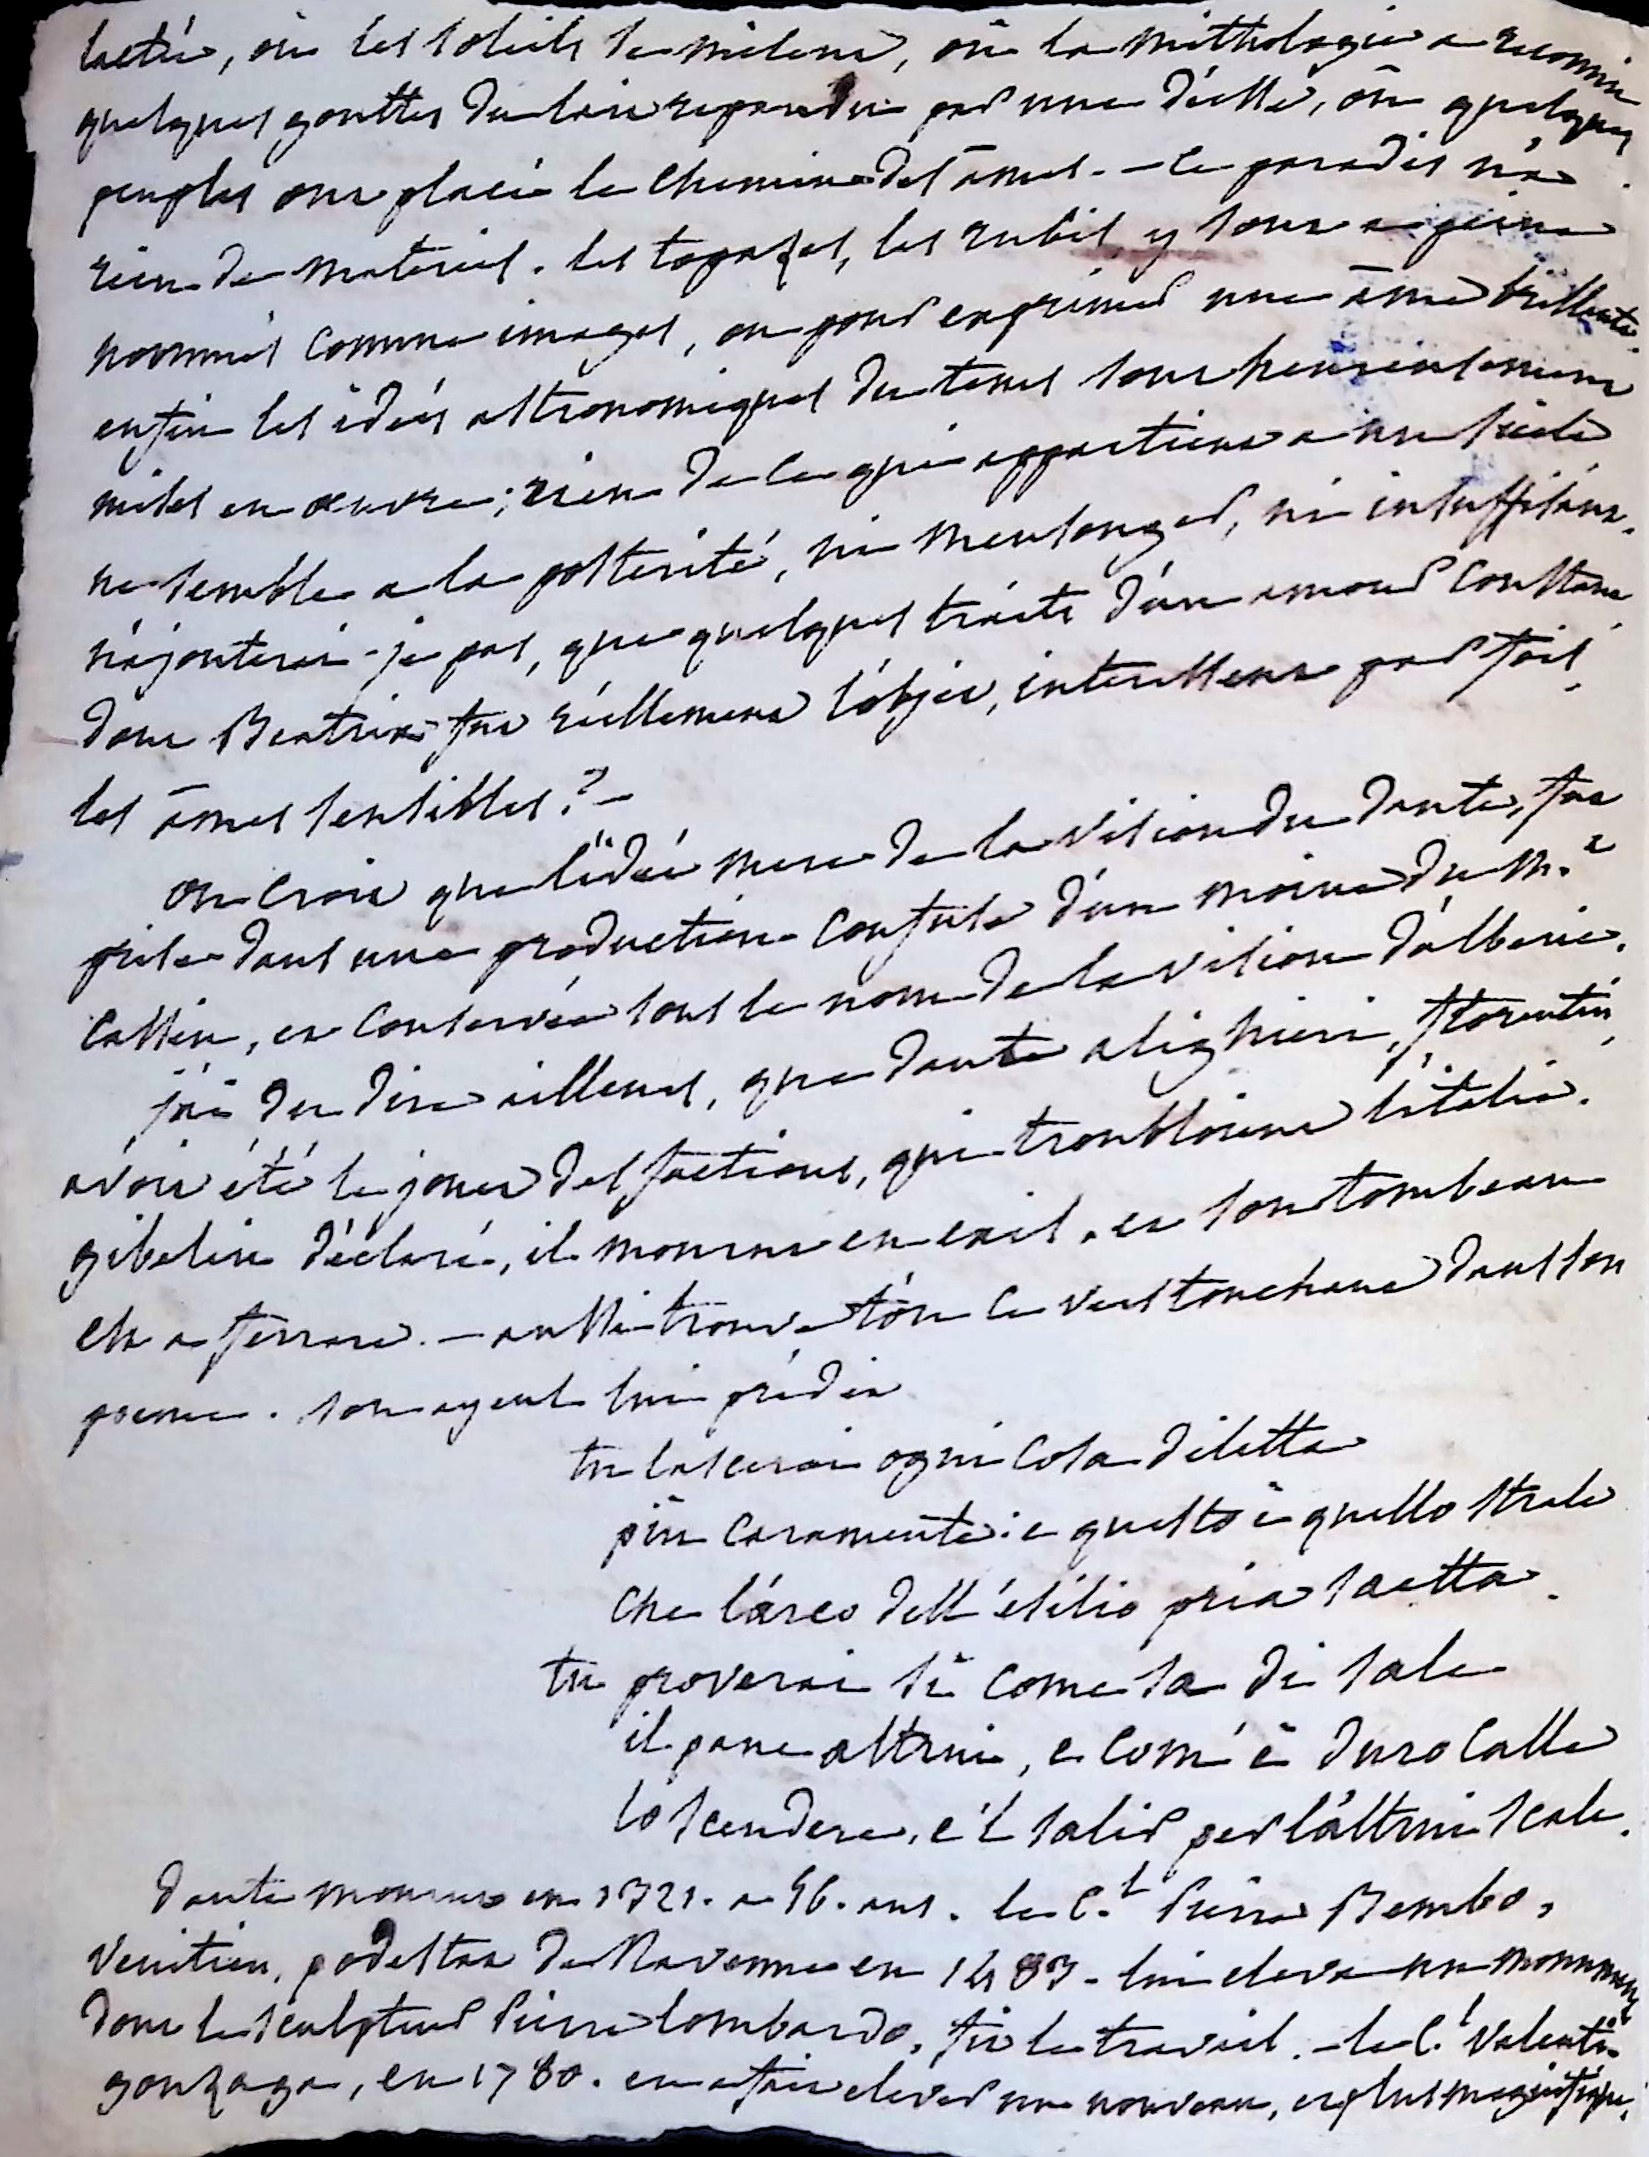 lactée, où les soleils se mêlent, où la mithologie a reconnu
quelques gouttes du lait repandu par une déesse, où quelques
peuples ont placé le chemin des âmes. — le paradis n'a
rien de materiel. les topazes, les rubis, y sont a peine
nommés comme images, ou pour exprimer une âme brillante.
enfin les idées astronomiques du tems sont heureusement
mises en œuvre; rien de ce qui appartient a un siecle
ne semble a la postérité, ni mensonger, ni insuffisant.
n'ajouterai-je pas, que quelques traits d'un amour constant
dont Beatrix fut réellement l'objet, interessent par fois
les âmes sensibles? —
on croit que l'idée mere de la vision du dante, fut
prise dans une production confuse d'un moine du M.t
Cassin, et conservée sous le nom de la vision d'alberic.
j'ai du dire ailleurs, que dante alighieri, florentin,
avoit été le jouet des factions, qui troubloient l'italie.
gibelin déclaré, il mourut en exil, et son tombeau
est a ferrare. — aussi trouve t'on ce vers touchant dans son
poeme. son ayeul lui prédit
tu lascerai ogni cosa diletta
piû caramente: e questo è quello strale
che l'arco dell' ésilio pria saetta.
tu proverai si come sa di sale
il pane altrui, e com' è duro calle
lo scendere, e'l salir per l'altrui scale.
dante mourut en 1321. a 56. ans. le C.l Pierre Bembo,
venitien, podestat de Ravenne en 1483 - lui eleva un monument
dont le sculpteur Pierre lombardo, fit le travail. - le C.l Valenti
gonzaga, en 1780. en a fait elever un nouveau, et plus magnifique.